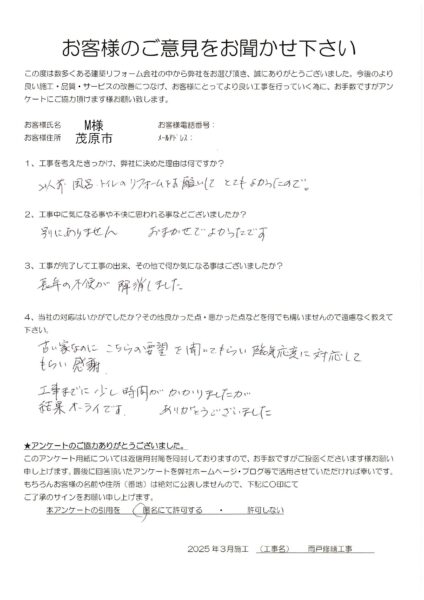 お客様のご意見をお聞かせ下さい
この度は数多くある建築リフォーム会社の中から弊社をお選び頂き、誠にありがとうございました。今後のより
良い施工・品質・サービスの改善につなげ、お客様にとってより良い工事を行っていく為に、お手数ですがアン
ケートにご協力頂けます様お願い致します。
お客様氏名 M様 お客様電話番号：
お客様住所 茂原市 メールアドレス：
1、工事を考えたきっかけ、弊社に決めた理由は何ですか？
以前 風呂・トイレのリフォームをお願いして とてもよかったので。
2、工事中に気になる事や不快に思われる事などございましたか？
別にありません おまかせでよかったです
3、工事が完了して工事の出来、その他で何か気になる事はございましたか？
長年の不便が 解消しました
4、当社の対応はいかがでしたか？その他良かった点・悪かった点などを何でも構いませんので遠慮なく教えて
下さい。
古い家なのに こちらの要望を聞いてもらい 臨機応変に対応して
もらい 感謝
工事までに少し時間がかかりましたが
結果オーライです。 ありがとうございました
★アンケートのご協力ありがとうございました。
このアンケート用紙については返信用封筒を同封しておりますので、お手数ですがご投函くださいます様お願い
申し上げます。最後に回答頂いたアンケートを弊社ホームページ・ブログ等で活用させていただければ幸いです。
もちろんお客様の名前や住所（番地）は絶対に公表しませんので、下記に○印にて
ご了承のサインをお願い申し上げます。
本アンケートの引用を 匿名にて許可する ・ 許可しない
2025年3月施工 （工事名） 雨戸修繕工事